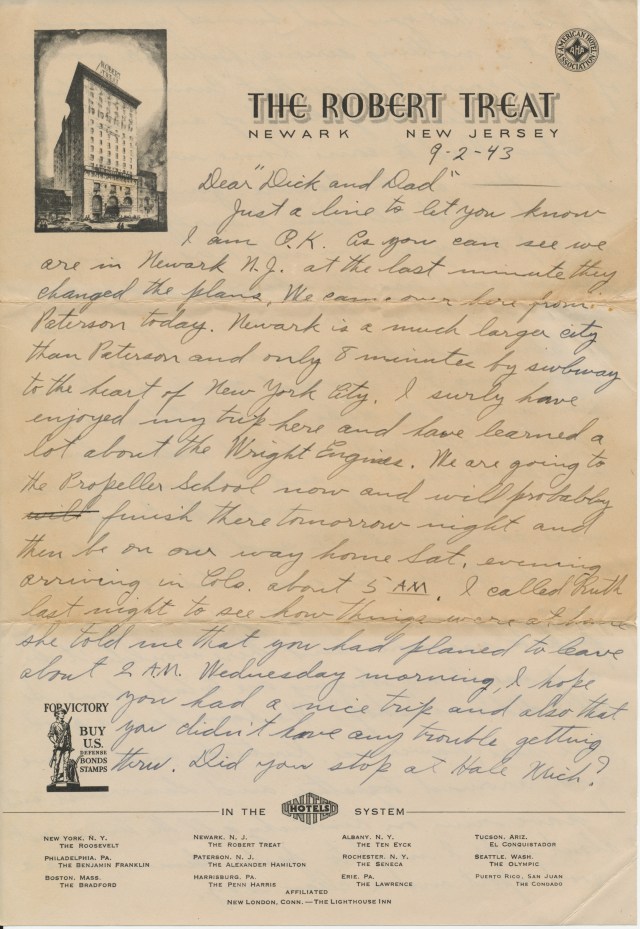 ROBERT TREAT
AMERICAN HOTEL ASSOCIATION
AHA
THE ROBERT TREAT
NEWARK NEW JERSEY
9-2-43
Dear "Dick and Dad"
Just a line to let you know
I am O.K. As you can see we
are in Newark N.J. at the last minute they
changed the plans. We came over here from
Paterson today. Newark is a much larger city
than Paterson and only 8 minutes by subway
to the heart of New York City. I surly have
enjoyed my trip here and have learned a
lot about the Wright Engines. We are going to
the Propeller School now and will probably
will finish there tomorrow night and
then be on our way home Sat. evening
arriving in Cols. about 5 AM. I called Ruth
last night to see how things were at home
she told me that you had planed to leave
about 2 A.M. Wednesday morning, I hope
you had a nice trip and also that
you didn't have any trouble getting
thru. Did you stop at Hale Mich?
FOR VICTORY
BUY
U.S.
DEFENSE
BONDS
STAMPS
IN THE UNITED HOTELS SYSTEM
NEW YORK, N. Y. NEWARK, N. J. ALBANY, N. Y. TUCSON, ARIZ.
THE ROOSEVELT THE ROBERT TREAT THE TEN EYCK EL CONQUISTADOR
PHILADELPHIA, PA. PATERSON, N. J. ROCHESTER, N. Y. SEATTLE, WASH.
THE BENJAMIN FRANKLIN THE ALEXANDER HAMILTON THE SENECA THE OLYMPIC
BOSTON, MASS. HARRISBURG, PA. ERIE, PA. PUERTO RICO, SAN JUAN
THE BRADFORD THE PENN HARRIS THE LAWRENCE THE CONDADO
AFFILIATED
NEW LONDON, CONN.—THE LIGHTHOUSE INN